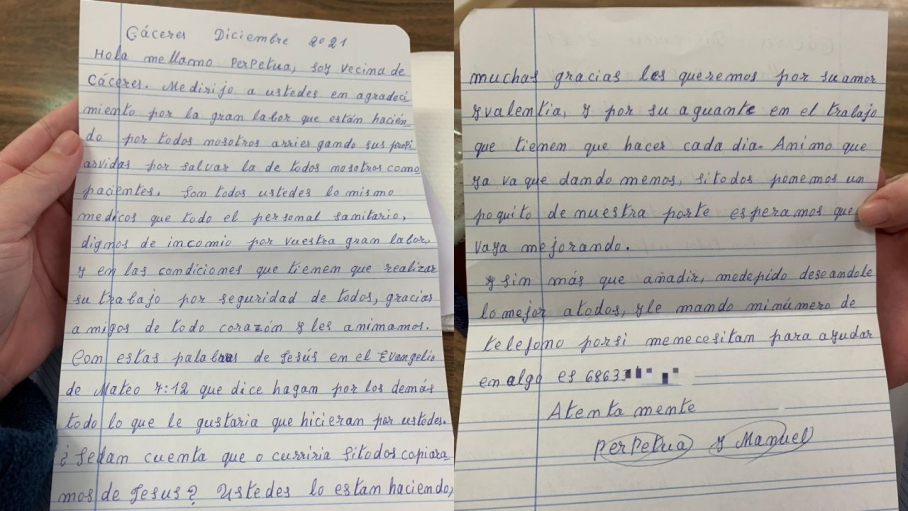 Cáceres Diciembre 2021
Hola mellamo Perpetua, soy vecina de
Cáceres. Medirijo a ustedes en agradeci
miento por la gran labor que están hacién-
do por todos nosotros arries gando sus propi
asvidas por salvar la de todos nosotros como
pacientes. Son todos ustedes lo mismo
medicos que todo el personal sanitario,
dignos de incomio por vuestra gran labor.
y en las condiciones que tienen que realizar
su trabajo por seguridad de todos, gracias
amigos de todo corazón y les animamos.
Con estas palabras de Jesús en el Evangelio
de Mateo 7:12 que dice hagan por los demás
todo lo que le gustaria que hicieran por ustedes.
¿Sedan cuenta que o curriria sitodos copiara
mos de Jesus? Ustedes lo estam haciendo,
muchas gracias les queremos por su amor
y valentia, y por su aguante en el trabajo
que tienem que hacer cada dia. Animo que
ya va que dando menos, sitodos ponemos un
poquito de nuestra parte esperamos que
vaya mejorando.
y sin más que añadir, medepido deseandole
lomejor atodos, yle mando minúmero de
telefono porsi menecesitan para ayudar
en algo es 6863
Atenta mente
Perpetua y Manuel